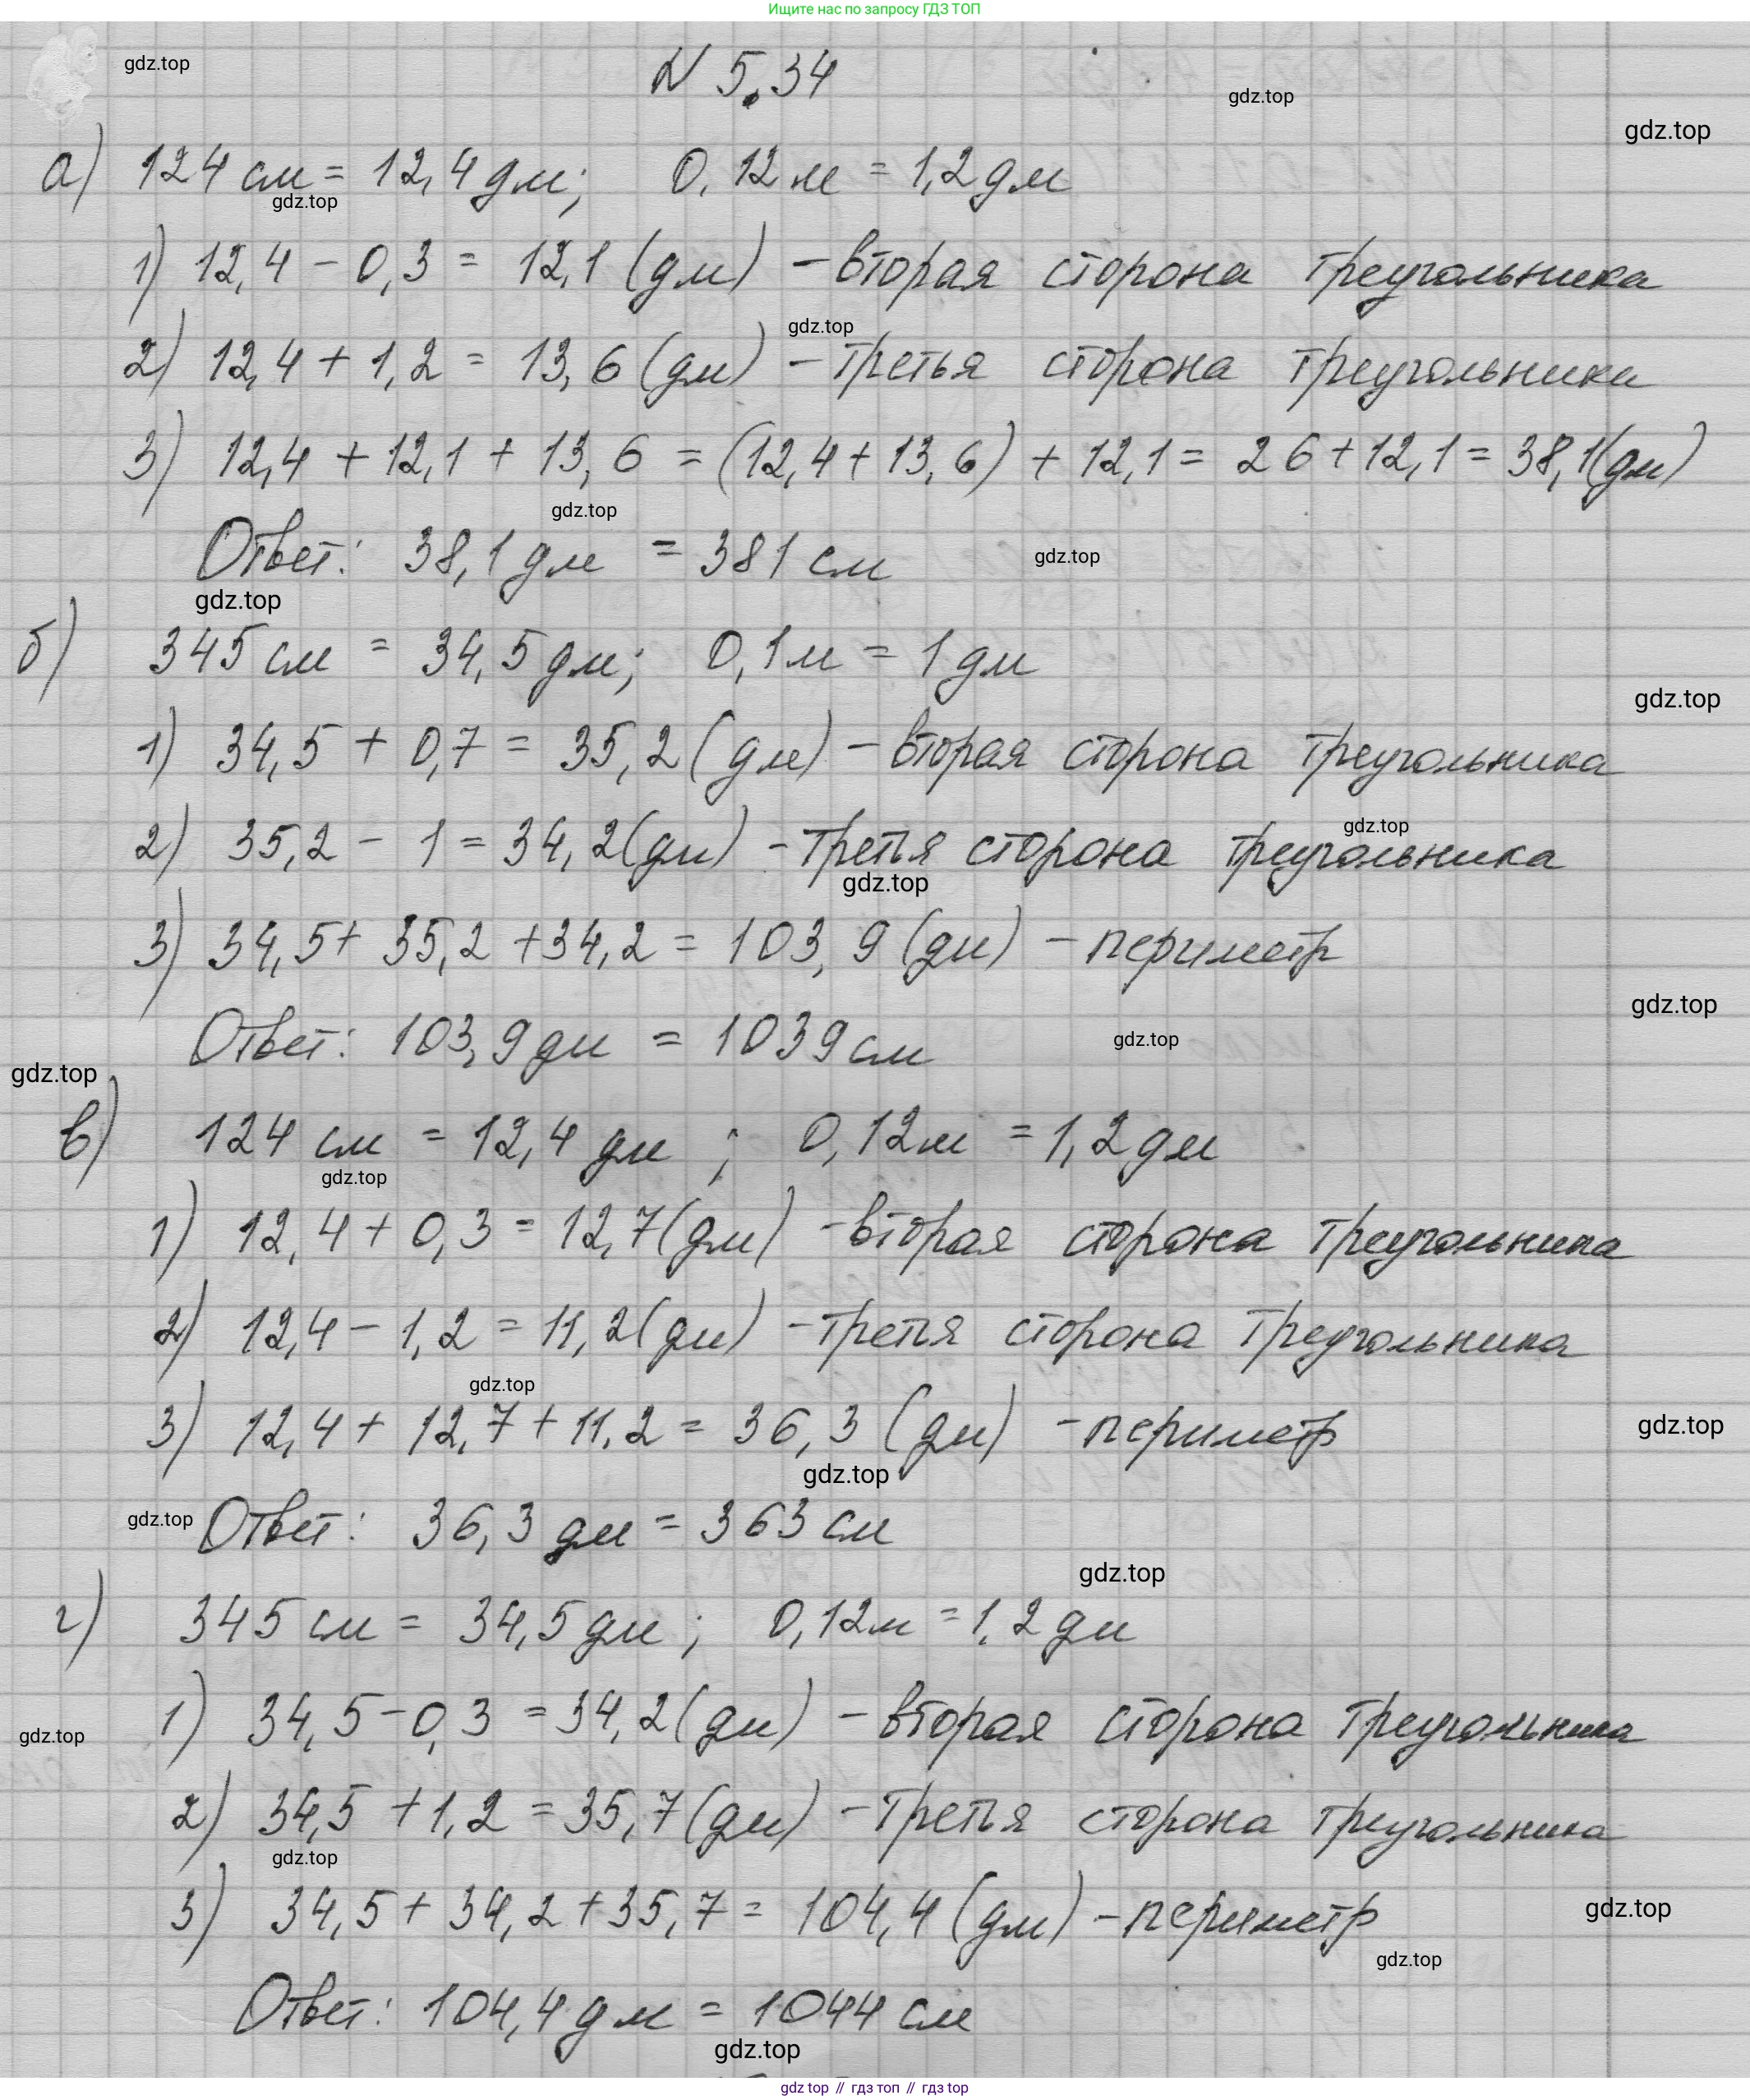 Ищите нас по запросу ГДЗ ТОП
gdz.top
N 5.34
gdz.top
gdz.top
а) 124 см = 12,4 дм; 0,12 м = 1,2 дм
gdz.top
1) 12,4 - 0,3 = 12,1 (дм) - вторая сторона треугольника
gdz.top
2) 12,4 + 1,2 = 13,6 (дм) - третья сторона треугольника
3) 12,4 + 12,1 + 13,6 = (12,4 + 13,6) + 12,1 = 26 + 12,1 = 38,1 (дм)
gdz.top
Ответ: 38,1 дм = 381 см
gdz.top
gdz.top
б) 345 см = 34,5 дм; 0,1 м = 1 дм
gdz.top
1) 34,5 + 0,7 = 35,2 (дм) - вторая сторона треугольника
gdz.top
2) 35,2 - 1 = 34,2 (дм) - третья сторона треугольника
gdz.top
3) 34,5 + 35,2 + 34,2 = 103,9 (дм) - периметр
gdz.top
Ответ: 103,9 дм = 1039 см
gdz.top
gdz.top
в) 124 см = 12,4 дм ; 0,12 м = 1,2 дм
gdz.top
1) 12,4 + 0,3 = 12,7 (дм) - вторая сторона треугольника
2) 12,4 - 1,2 = 11,2 (дм) - третья сторона треугольника
gdz.top
3) 12,4 + 12,7 + 11,2 = 36,3 (дм) - периметр
gdz.top
gdz.top
gdz.top
Ответ: 36,3 дм = 363 см
gdz.top
г) 345 см = 34,5 дм ; 0,12 м = 1,2 дм
1) 34,5 - 0,3 = 34,2 (дм) - вторая сторона треугольника
gdz.top
2) 34,5 + 1,2 = 35,7 (дм) - третья сторона треугольника
gdz.top
3) 34,5 + 34,2 + 35,7 = 104,4 (дм) - периметр
gdz.top
gdz.top
Ответ: 104,4 дм = 1044 см
gdz.top
gdz top // гдз топ // гдз top